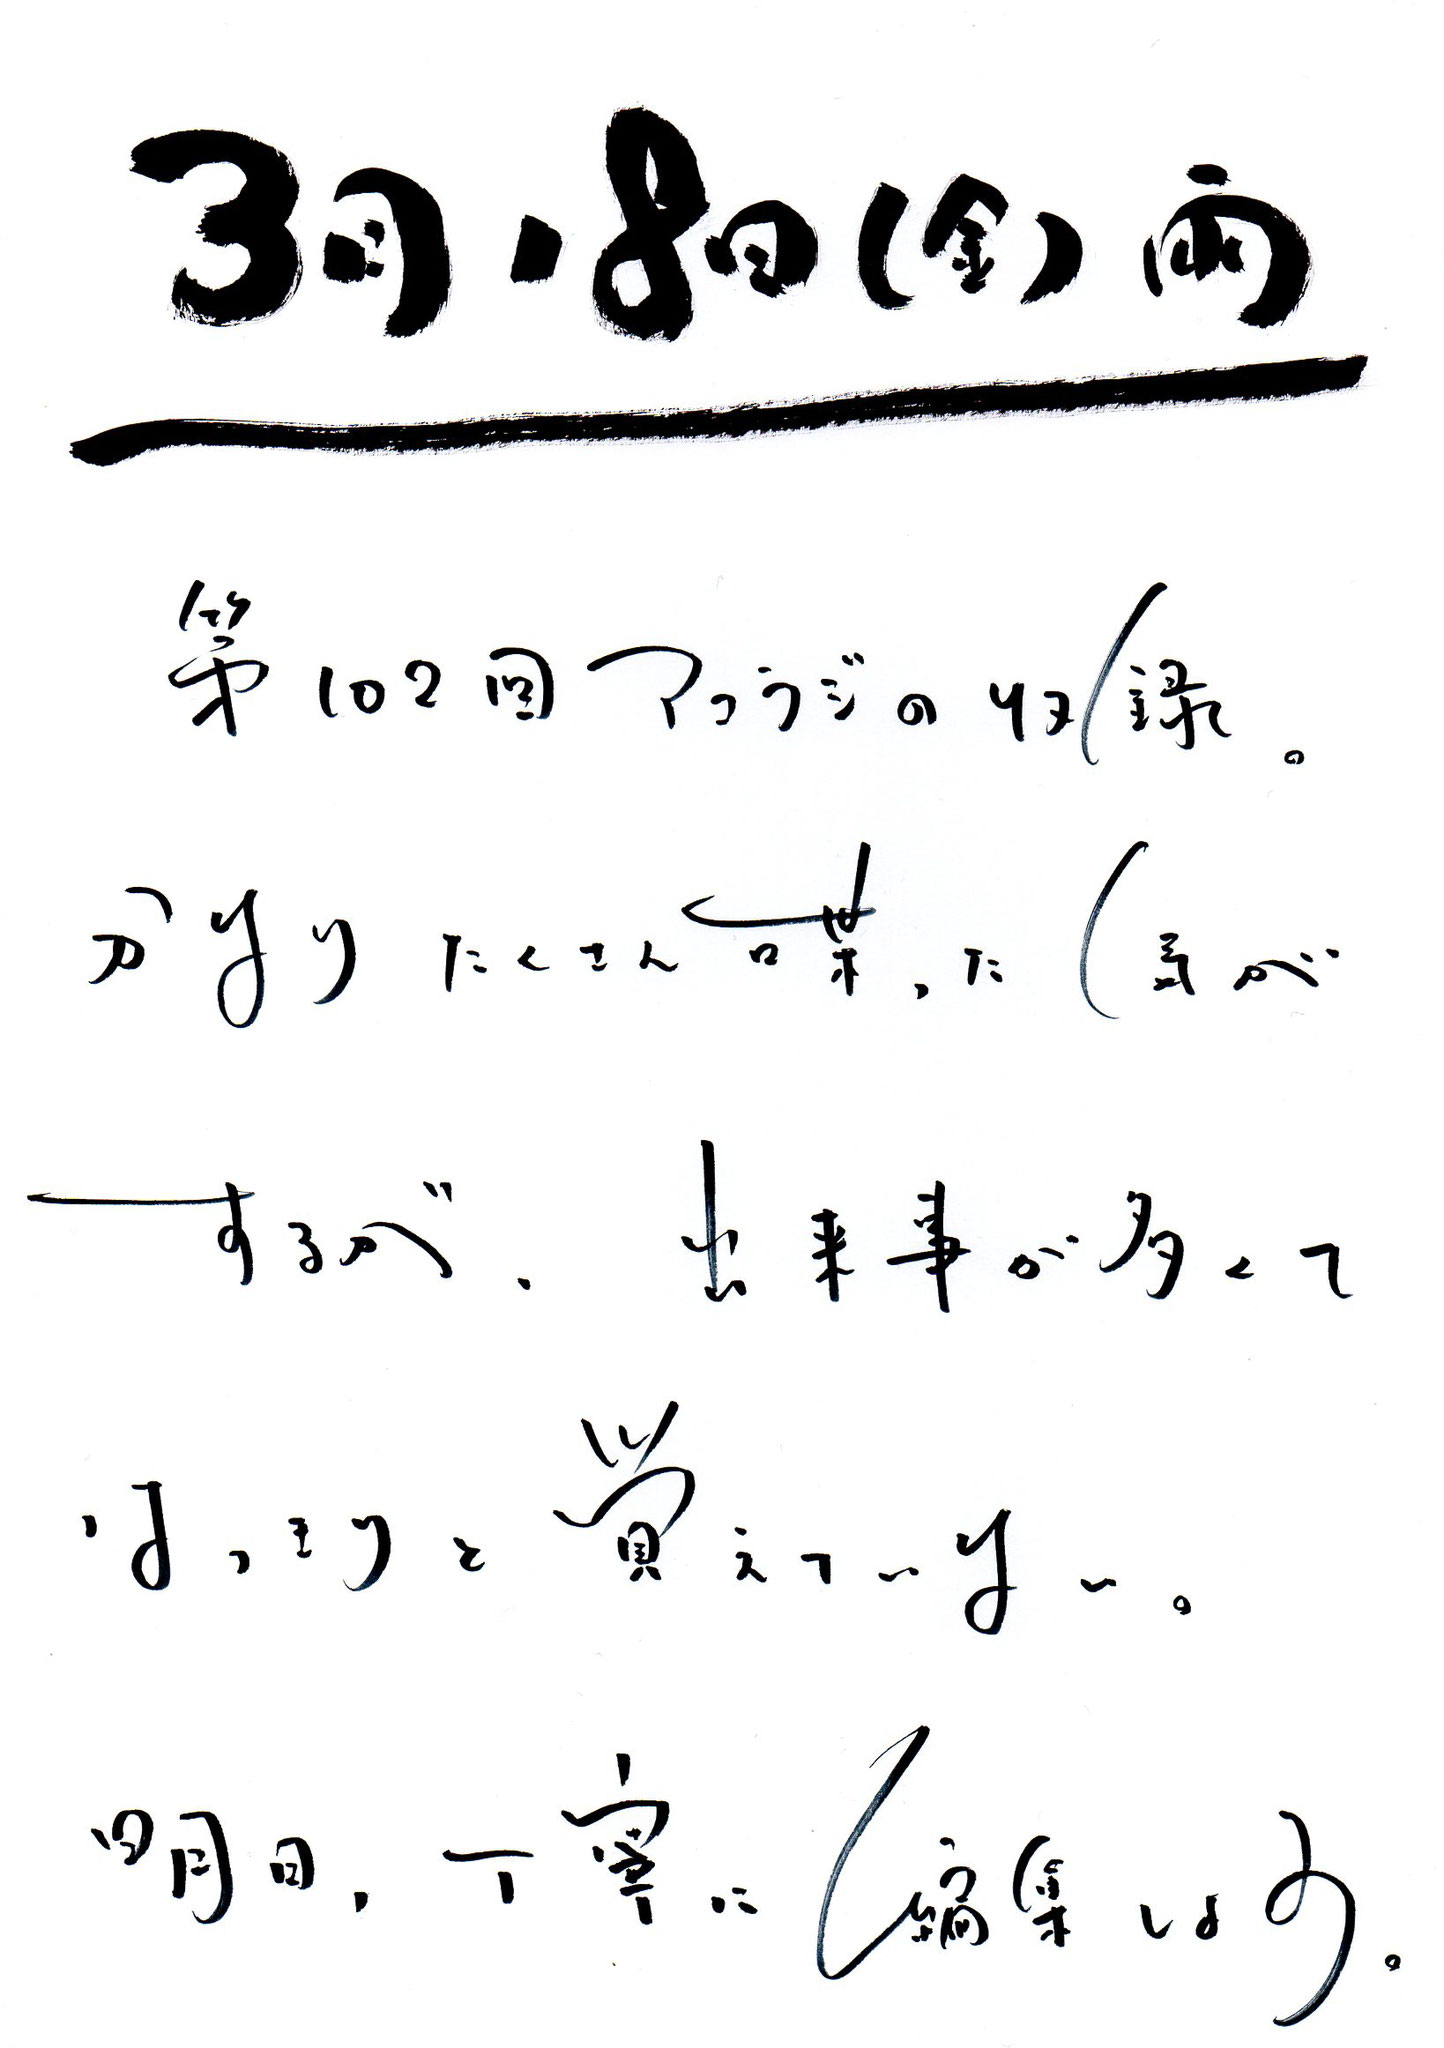 3月18日(金)雨
第102回アコラジの収録。
かなりたくさん喋った気が
するが、出来事が多くて
はっきりと覚えていない。
明日、丁寧に編集しよう。